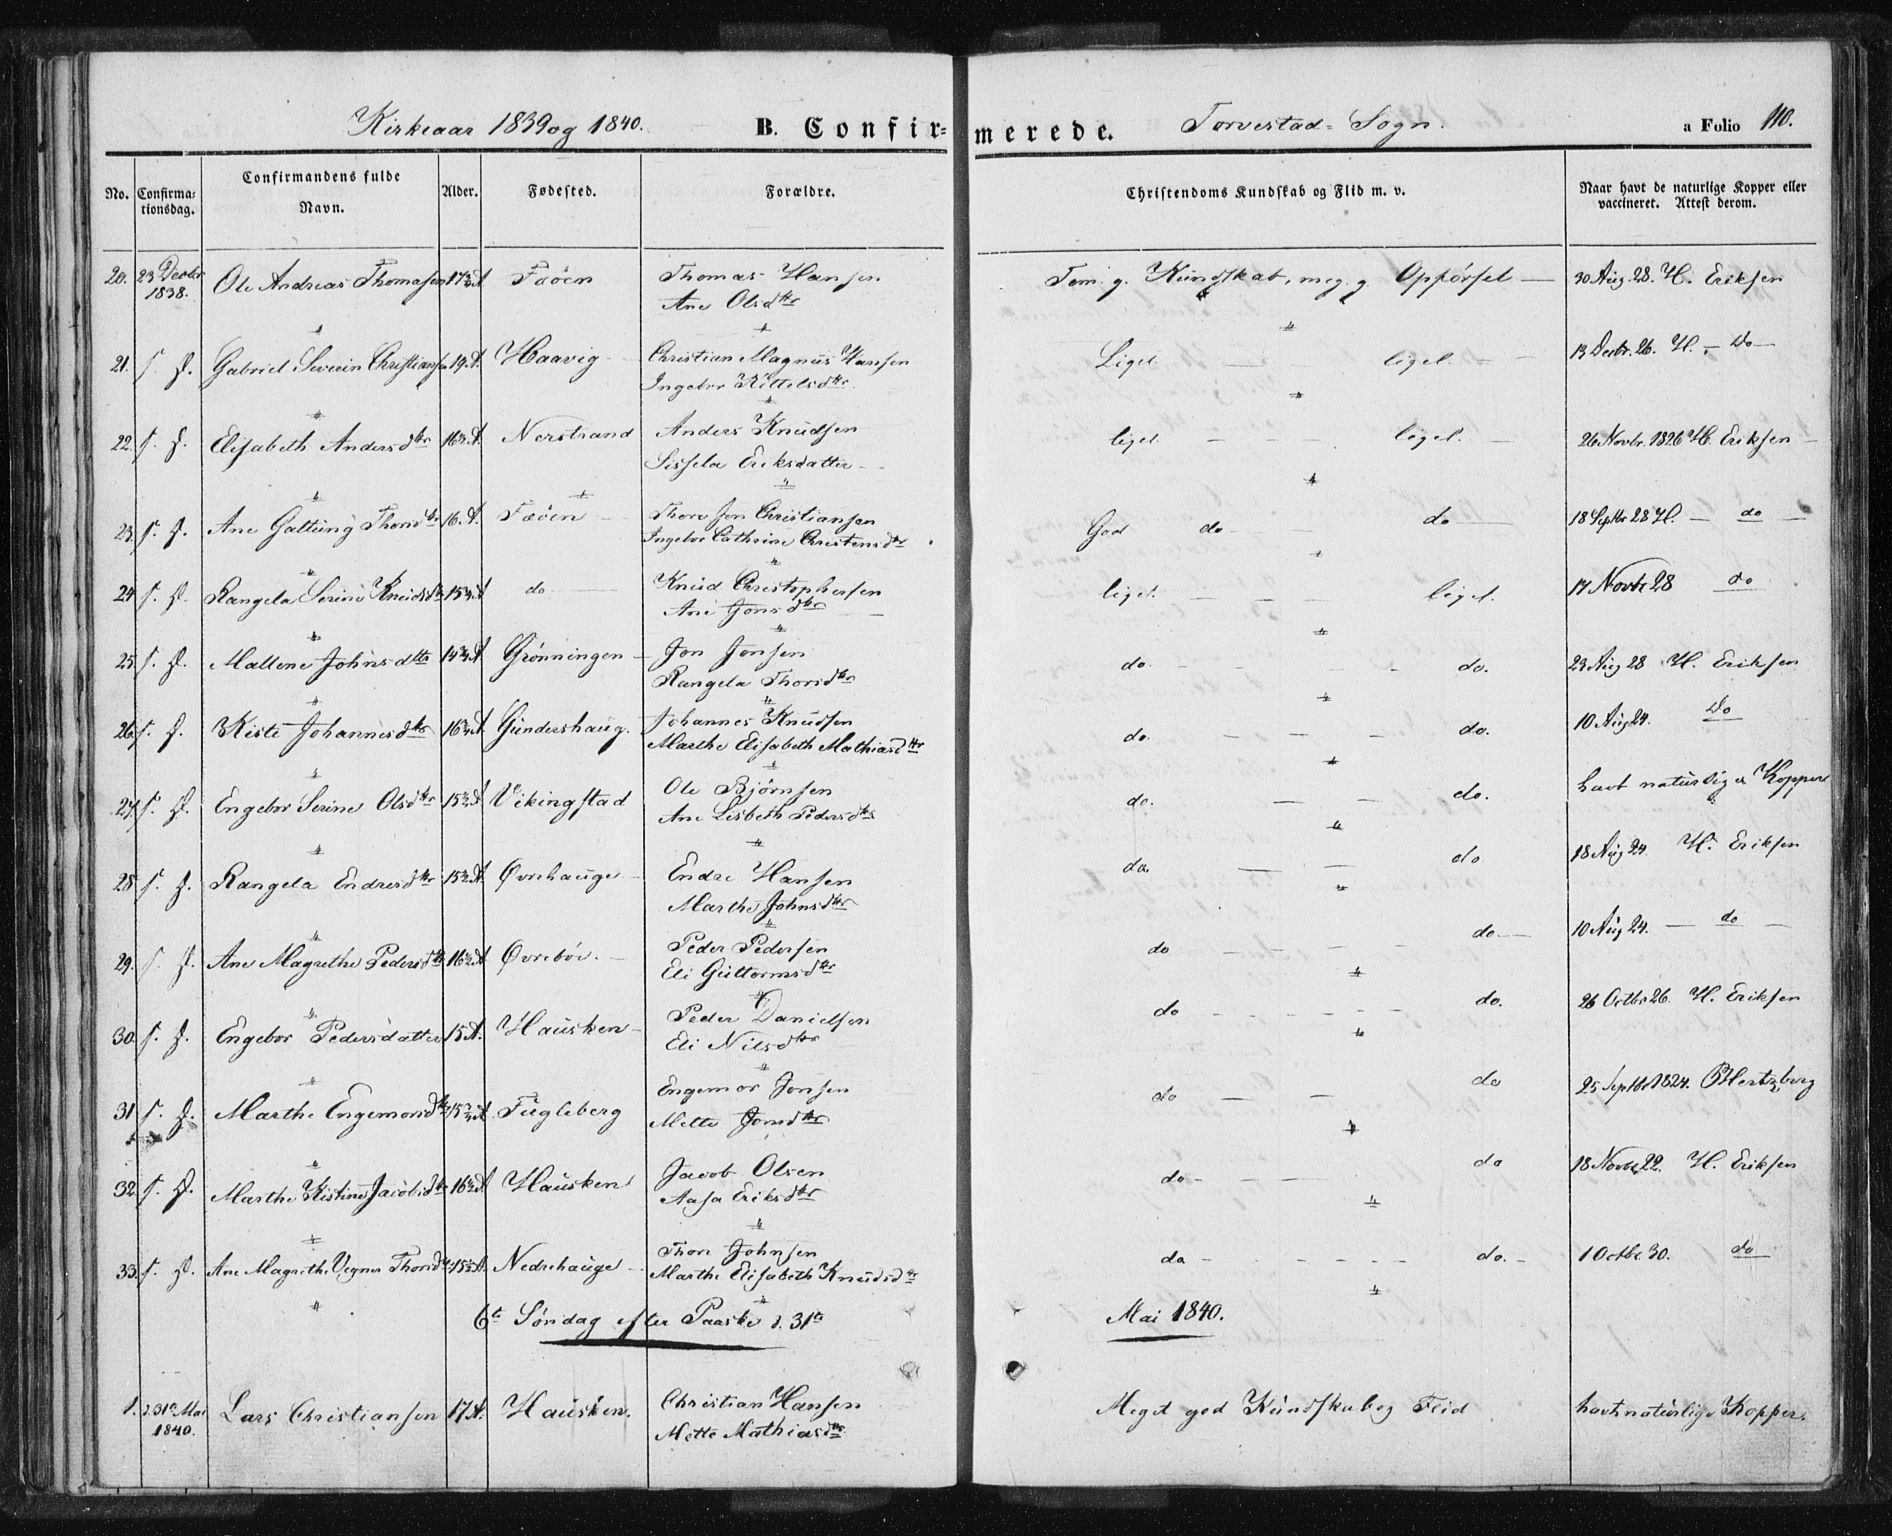 Kirkeaar 1839 og 1840. B. Confirmerede. Torvestad Sogn. a Folio 110.
No. Confirmationsdag. Confirmandens fulde Navn. Alder. Fødested. Forældre. Christendoms Kundskab og Flid m. v. Naar havt de naturlige Kopper eller vaccineret. Attest derom.
20. 23 Decbr Ole Andreas Thomasen 17 A Føøen Thomas Hansen Tem. g. Kundskab, meg. g. Opførsel — 30 Aug. 28. H. Eriksen
1838. Ane Olsdtr
21. s. D. Gabriel Severin Christiansen A. Haavig Christian Magnus Hansen Liget — liget. — 13 Decbr. 26. H. — Do —
Ingebor Kittelsdtr
22. s. D. Elisabeth Andersdtr 16 A. Nerstrand Anders Knudsen liget. — — liget. — 26 Novbr. 1826 H. Eriksen —
Sissela Eriksdatter —
23. s. D. Ane Galtung Thorsdtr 16. A. Føøen — Thore Jon Christiansen God do — do — 18 Septbr 28 H. — do —
Ingebor Cathrine Christensdtr
24. s. D. Rangela Serine Knudsdtr 15 A do — Knud Christophersen liget. — liget. 17 Novbr 28 do
Ane Jonsdtr —
25. s. D. Mallene Johnsdtr 14¾ A Grønningen — Jon Jonsen do. — — do. 23 Aug 28 H. Eriksen
Rangela Thorsdtr
26. s. D. Kiste Johannesdtr 16 A Gundershaug. Johannes Knudsen do. — — do. 10 Aug 24. Do
Marthe Elisabeth Mathiasdtr
27. s. D. Engebor Serine Olsdtr 15 A Vikingstad Ole Bjørnsen do. — — do. havt naturlige Kopper
Ane Lisbeth Pedersdtr
28. s. D. Rangela Endresdtr 15 A. Øvrehauge — Endre Hansen do. — — do 18 Aug 24. H. Eriksen
Marthe Johnsdtr
29. s. D. Ane Magrethe Pedersdtr 16½ A Øvrebøe. — Peder Pedersen do — — do — 10 Aug 24. — do —
Eli Guttormsdtr
30. s. D. Engebor Pedersdatter 15 A. Hausken — Peder Danielsen do — — do. 26 Octbr 26. H. Eriksen
Eli Nilsdtr
31 s. D. Marthe Engemorsdtr 15 A Fugleberg Engemor Jonsen do — — do 25 Septbr 1824. Hertzberg
Mette Jonsdtr
32. s. D. Marthe Kistine Jacobsdtr 16½ A Hausken Jacob Olsen do — — do 18 Novbr 22. H. Eriksen
Aasa Eriksdtr
33. s. D. Ane Magrethe Vegner Thorsdtr 15½ A. Nedrehauge — Thore Johnsen do — — do. — 1 Octbr 30. do
Marthe Elisabeth Knudsdtr
6te Søndag efter Paaske d. 31te Mai 1840.
1. d. 31te Mai Lars Christiansen 17 A. Hausken. Christian Hansen Meget god Kundskab og Flid havt naturlige Kopper.
1840. Mette Mathiasdtr